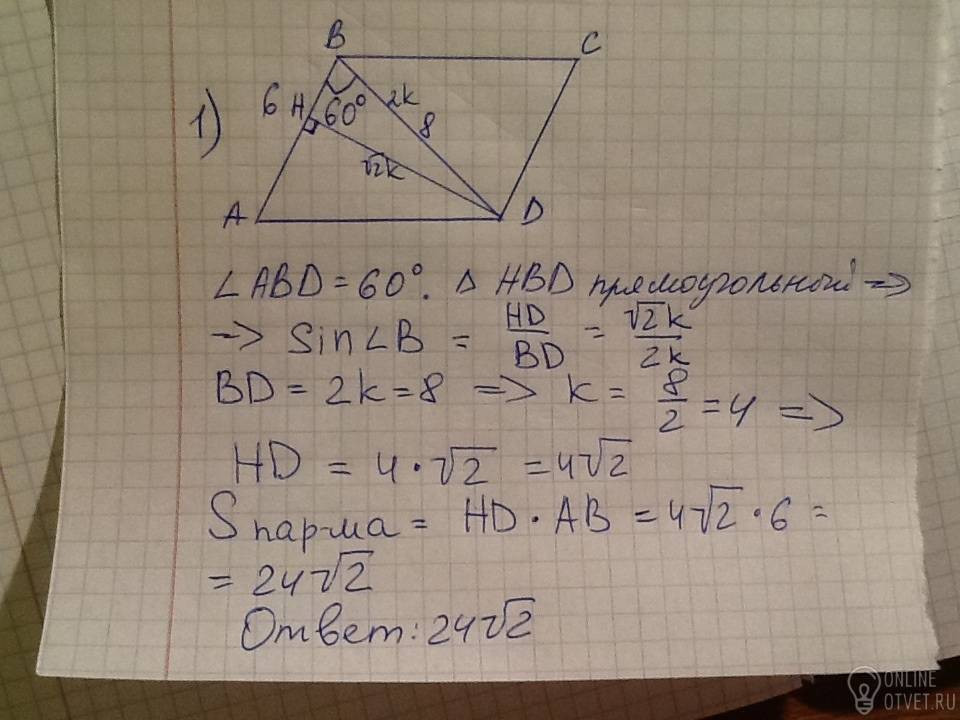 1)
B
C
6 H 60° 2k
8
√2k
A
D
∠ABD = 60°. △ HBD прямоугольный =>
=> Sin∠B = HD/BD = √2k/2k
BD = 2k = 8 => k = 8/2 = 4 =>
HD = 4·√2 = 4√2
Sпар-ма = HD · AB = 4√2 · 6 =
= 24√2
Ответ: 24√2
ONLINE
OTVET.RU